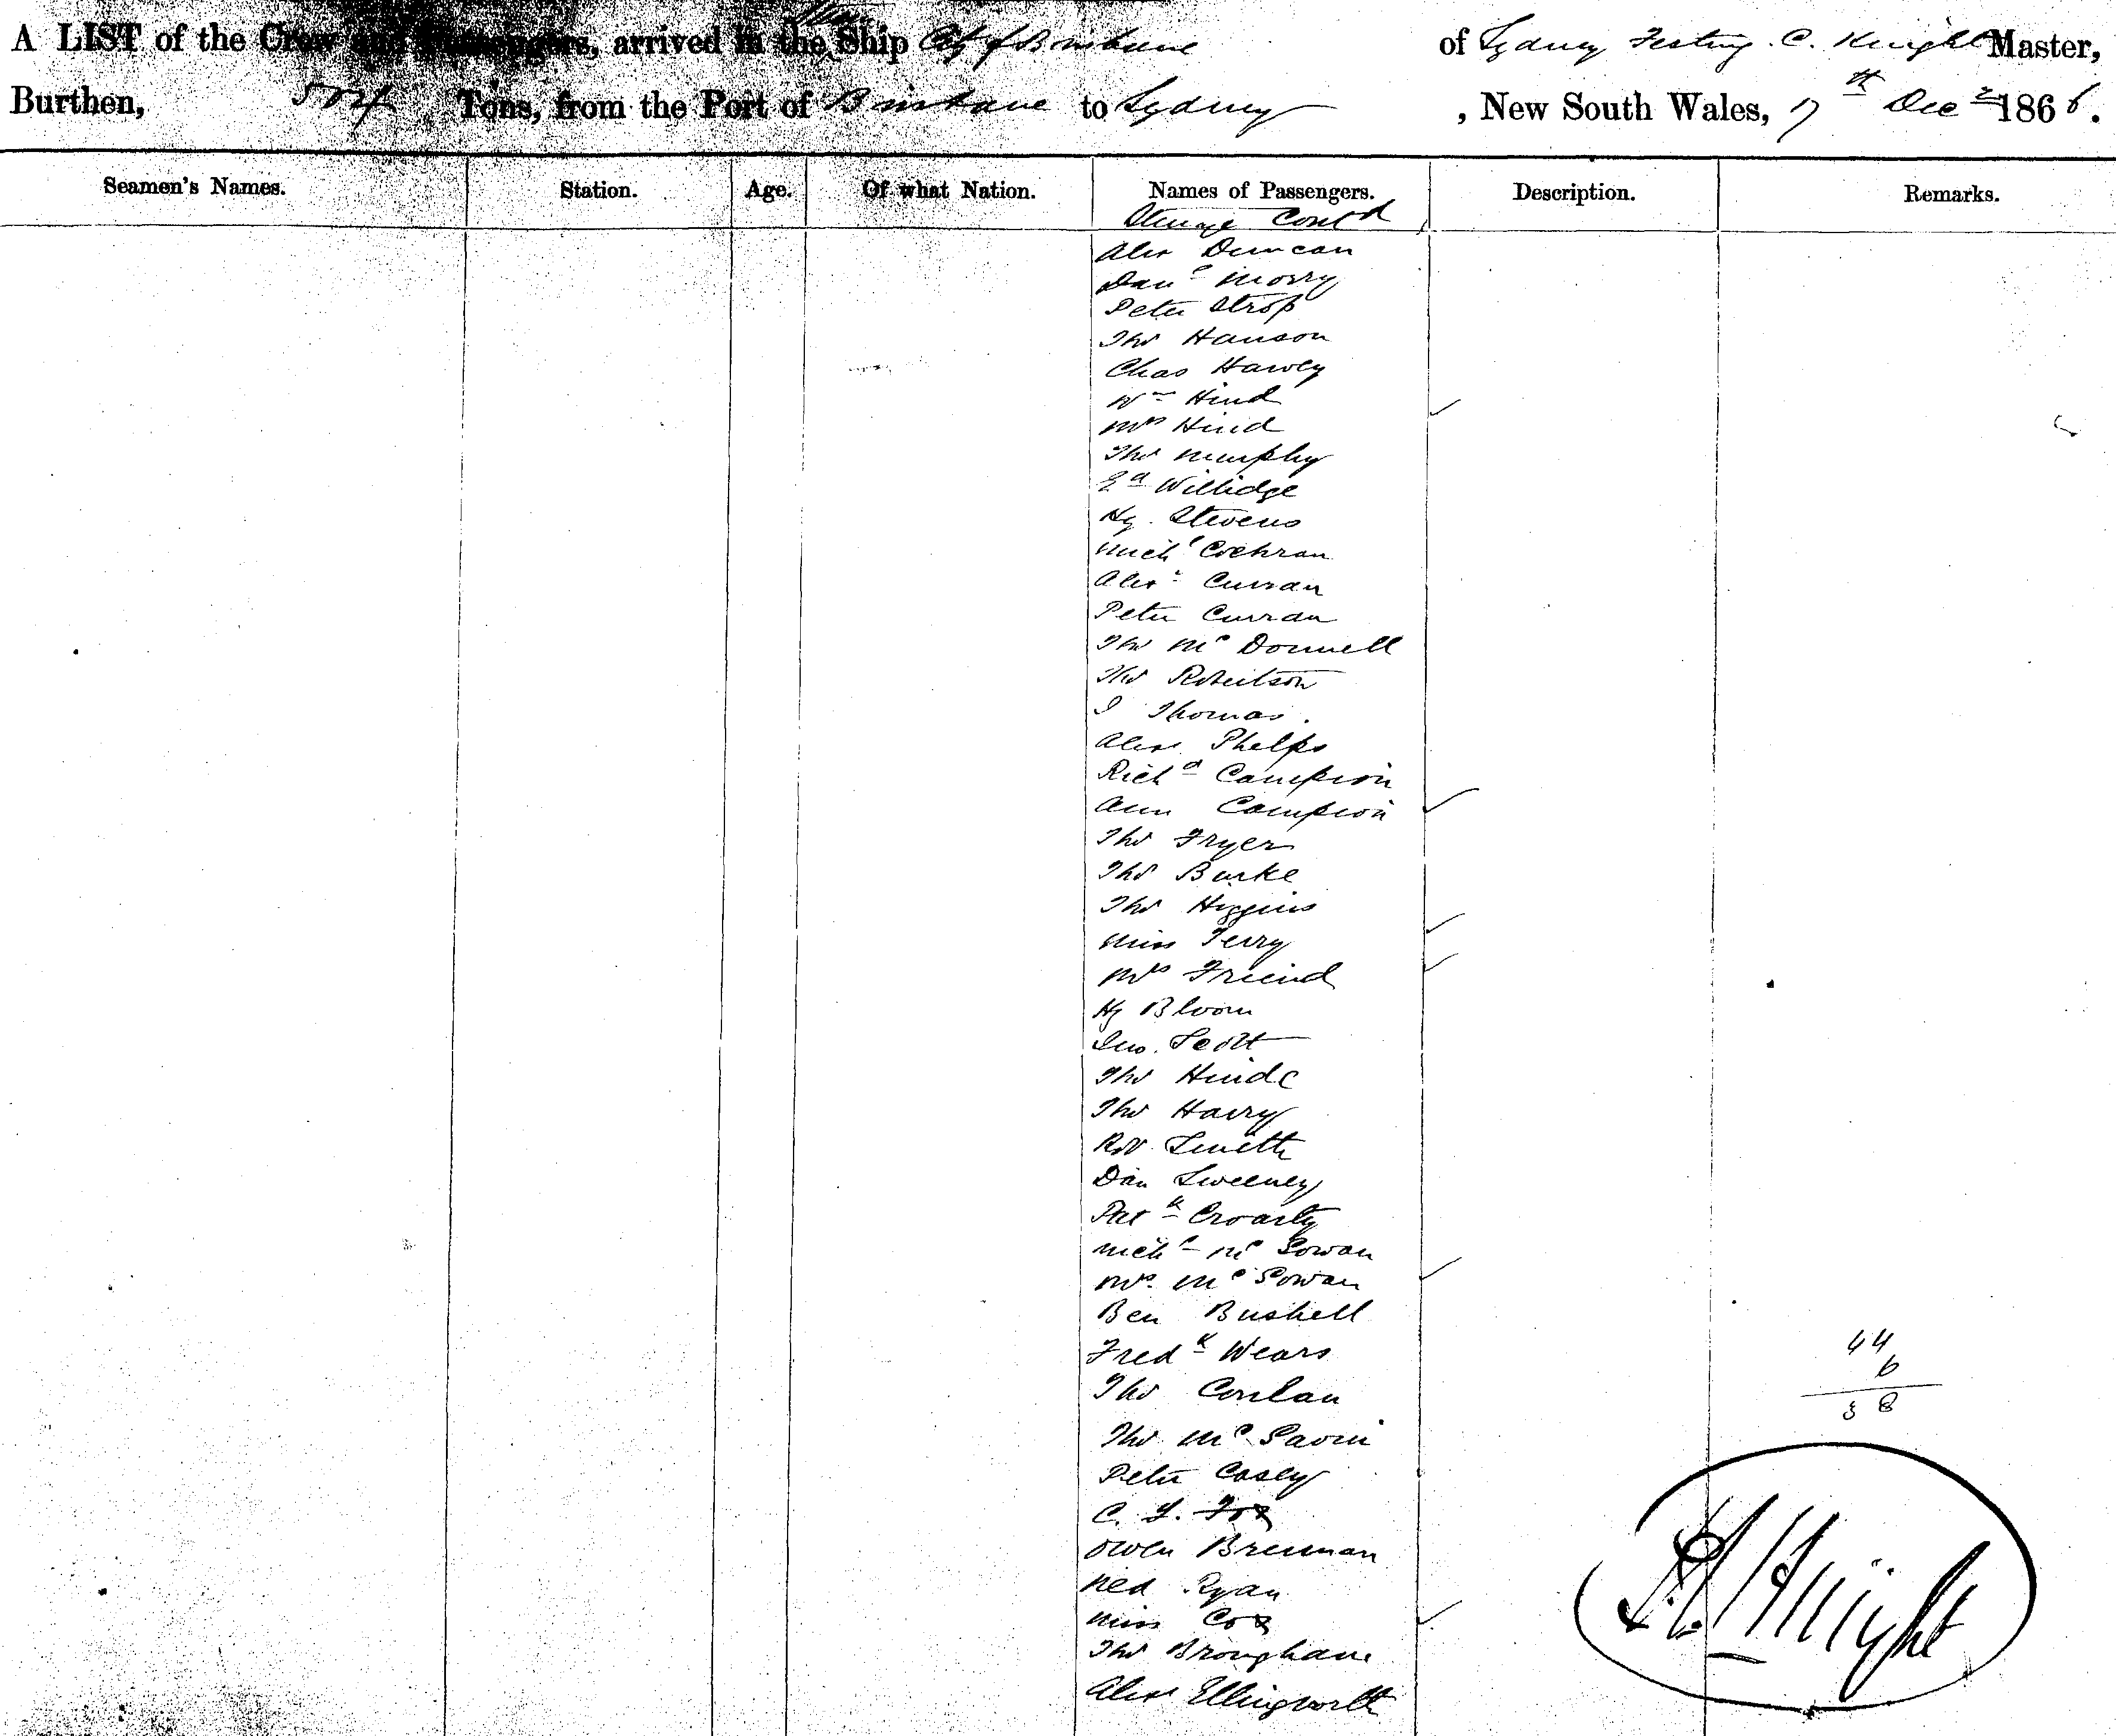 A LIST of the Crew and Passengers, arrived in the Ship City of Brisbane of Sydney Testing. C. Knight Master,
Burthen, 504 Tons, from the Port of Brisbane to Sydney, New South Wales, 17th Decr 1866.
Seamen's Names. Station. Age. Of what Nation. Names of Passengers. Description. Remarks.
Steerage Contd
Alex Duncan
Danl Morry
Peter Strop
Thos Hanson
Chas Harvey
Wm Hind
Mrs Hind
Thos Murphy
Ed Willidge
Hy. Stevens
Michl Cochran
Alexr Curran
Peter Curran
Thos McDonnell
Thos Robertson
J Thomas.
Alexr Phelps
Richd Campion
Ann Campion
Thos Fryer
Thos Burke
Thos Higgins
Miss Terry
Mrs Friend
Hy Bloom
Jno. Scott
Thos Hinde
Thos Harry
Robt Smith
Dan Sweeney
Patk Croarty
Michl McGowan
Mrs. McGowan
Ben Bushell
Fredk Wears
Thos Conlan
Thos McGavin
Peter Casey
C. F. Fox
Owen Brennan
Ned Ryan
Miss Cox
Thos Brougham
Alexr Ellingworth
44
6
38
Knight